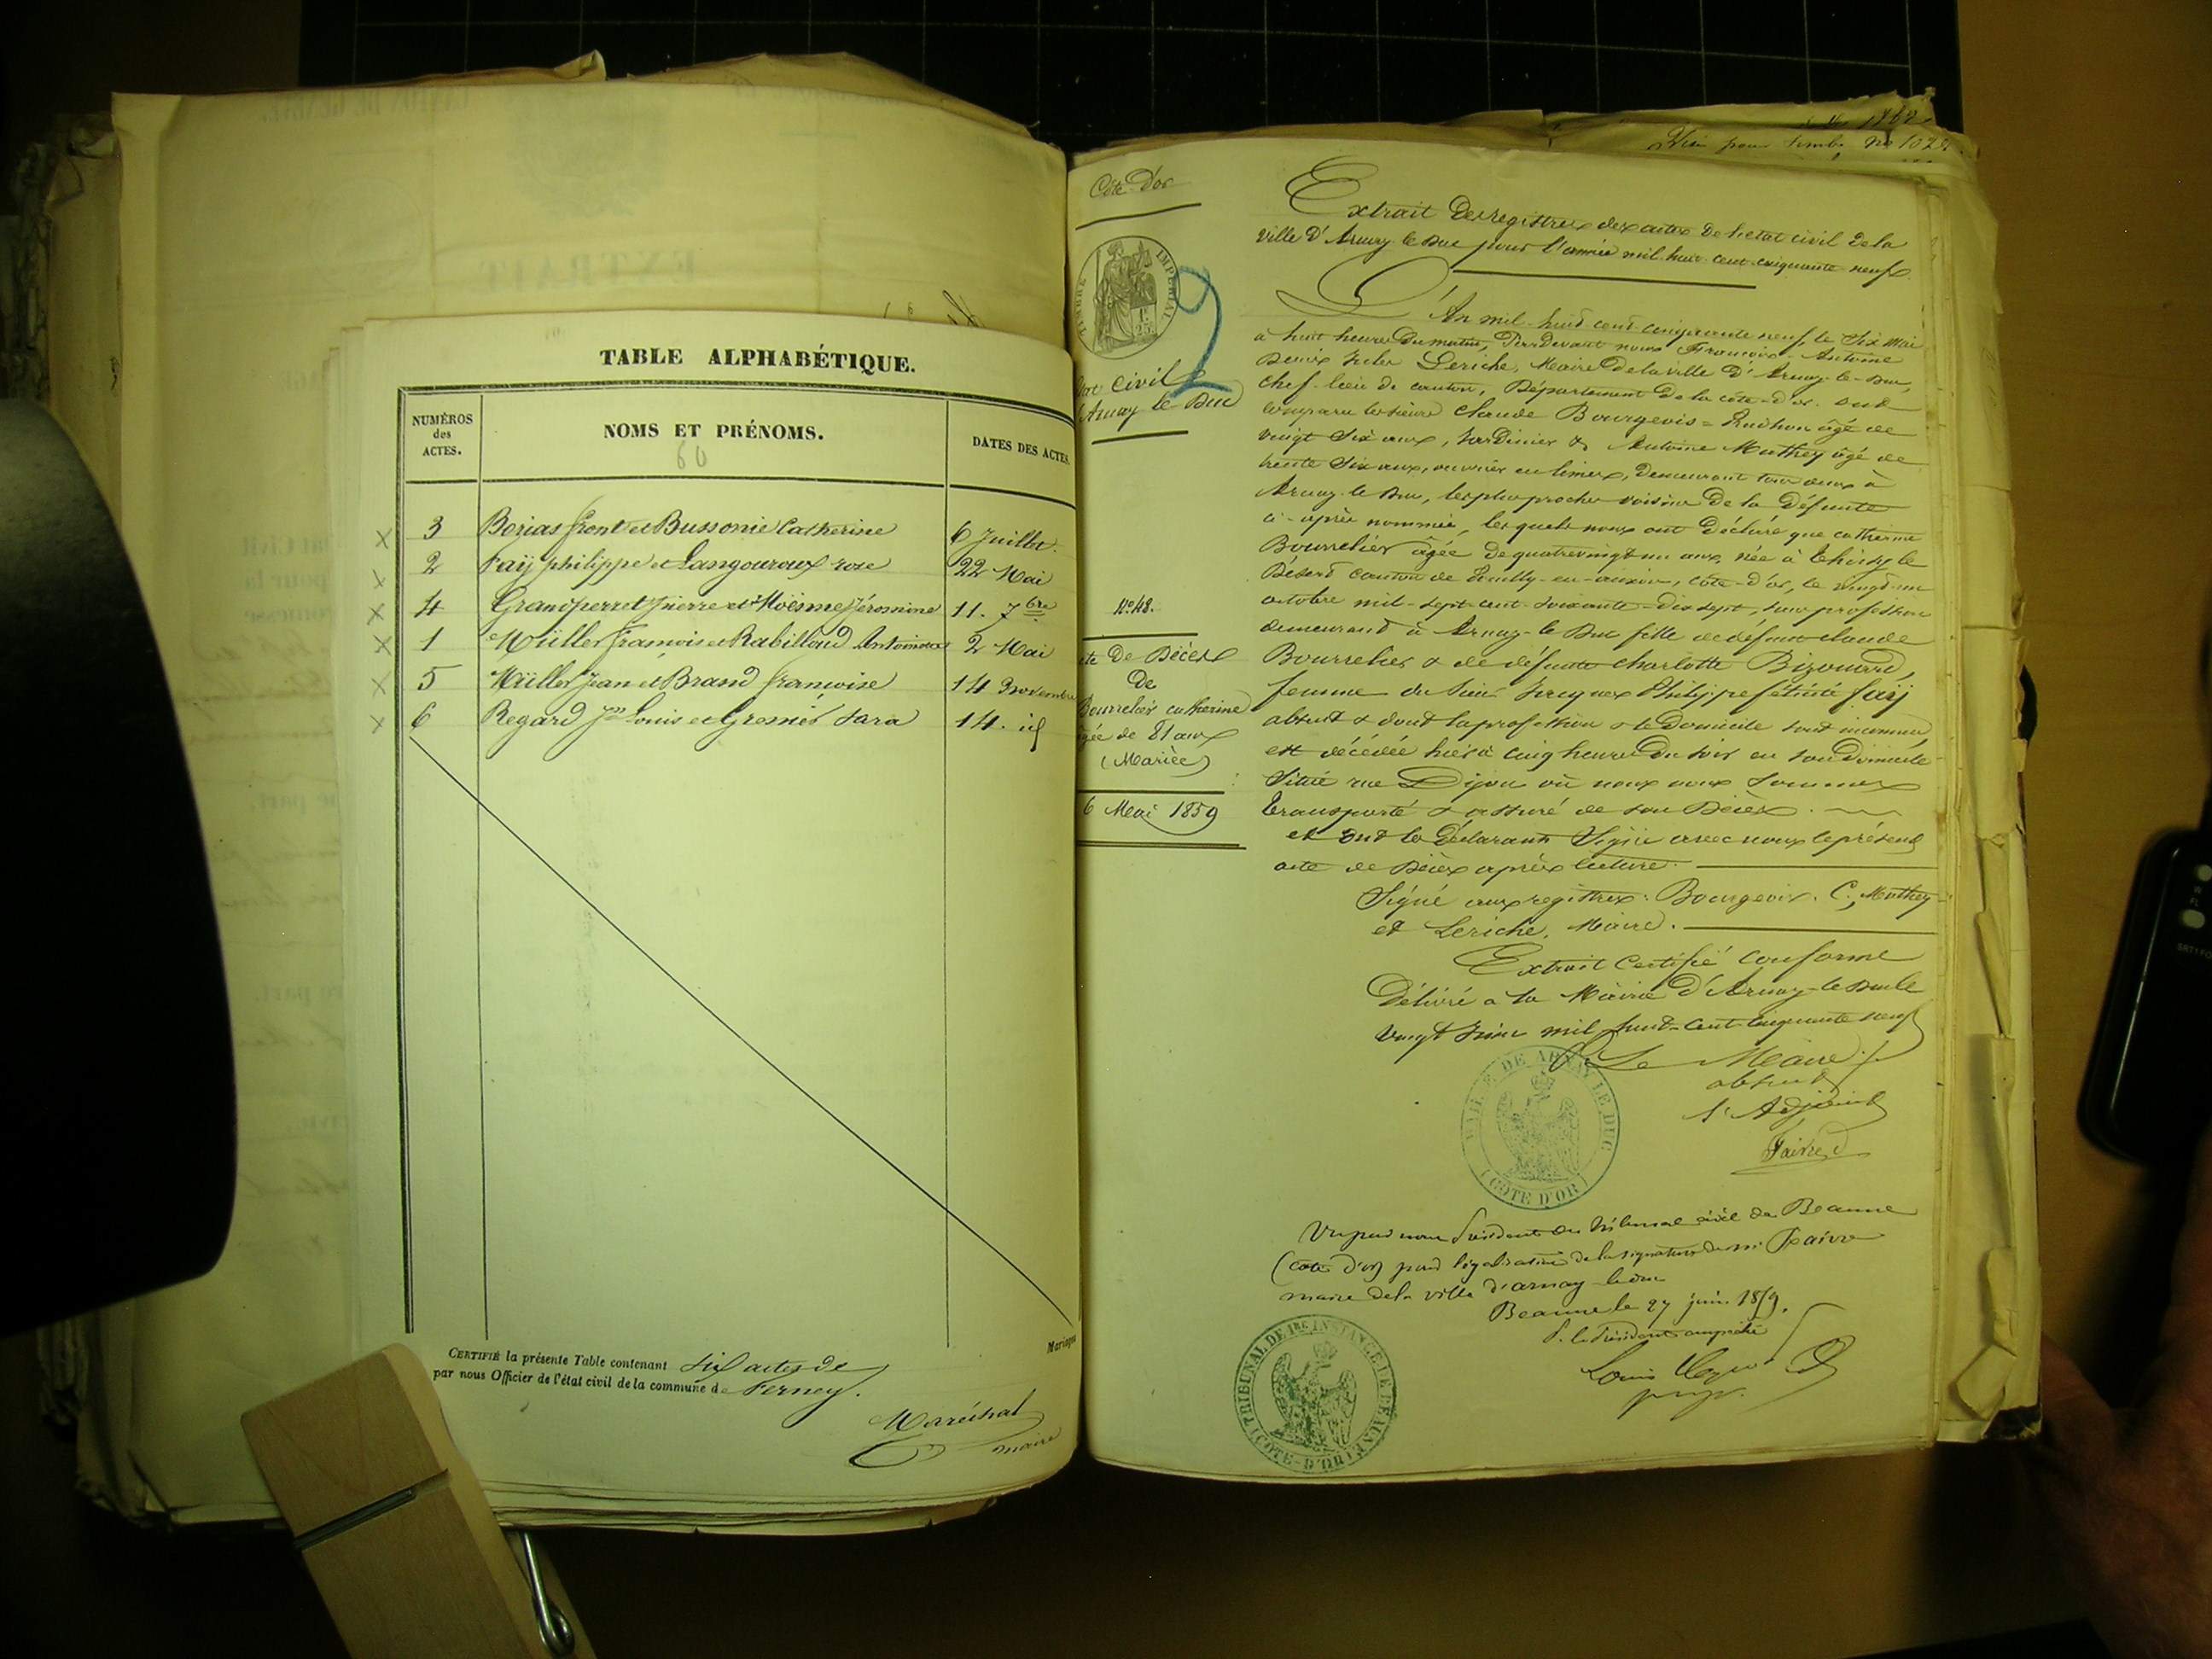 TABLE ALPHABÉTIQUE.
NUMÉROS des ACTES.
NOMS ET PRÉNOMS.
DATES DES ACTES.
60
3 Borias front et Bussonie Catherine 6 Juillet.
2 Faÿ philippe et Langouroux rose 22 Mai
4 Grandperret pierre et Jéromine 11. 7bre
1 Müller françois et Rabilloud Antoinette 2 Mai
5 Müller Jean et Brand françoise 14 9novembre
6 Regard Jn Louis et Gresnier Sara 14. id
Mariages
CERTIFIÉ la présente Table contenant six actes de
par nous Officier de l'état civil de la commune de Ferney.
Maréchal
maire
1862.
Visé pour timbre no 102
Côte-D'or
TIMBRE IMPERIAL
1 F. 25 C.
2
Etat Civil
d'Arnay le Duc
No. 48.
Acte De Décès
De
Bourrelier catherine
âgée de 81 ans
(Mariée)
6 Mai 1859
Extrait des registres des actes de l'etat civil de la
ville D'Arnay-le-Duc pour l'année mil-huit-cent-cinquante-neuf.
L'An mil-huit-cent-cinquante neuf le Six Mai
à huit heures du matin, Pardevant nous François-Antoine
Denis Jules Leriche, Maire de la ville D'Arnay-le-Duc,
chef-lieu de canton, Département de la côte-d'or. ont
comparu les sieurs Claude Bourgeois = Prudhon âgé de
vingt six ans, Jardinier & Antoine Mathey âgé de
trente Six ans, ouvrier en limes, demeurant tous deux à
Arnay-le-Duc, les plus proches voisins De la Défunte
ci-après nommée, lesquels nous ont Déclaré que catherine
Bourrelier âgée de quatrevingt un ans, née à Thoisy le
Désert canton de Pouilly-en-auxois, côte-d'or, le vingt-un
octobre mil-sept-cent-soixante-dix sept, sans profession
demeurant à Arnay-le-Duc fille de défunt claude
Bourrelier & de défunte charlotte Bizouard,
femme du Sieur Jacques Philippe Faÿ
absent & dont la profession & le Domicile sont inconnus,
est décédée hier à cinq heures Du soir en son Domicile
Situé rue Dijon où nous nous sommes
transporté & assuré de son Décès.
et ont les Déclarants Signé avec nous le présent
acte de Décès après lecture.
Signé aux registres: Bourgeois. C, Mathey
et Leriche, Maire.
Extrait Certifié conforme
Délivré à la Mairie d'Arnay-le-Duc le
vingt Juin mil-huit-cent-cinquante neuf
Le Maire
absent
l'Adjoint
VILLE DE ARNAY LE DUC
(COTE D'OR)
Vu par nous Président du Tribunal civil de Beaune
(côte d'or) pour légalisation de la signature de Mr
maire de la ville d'arnay-le duc
Beaune le 27 juin 1859.
P. le Président empêché
Louis
TRIBUNAL DE 1RE INSTANCE DE BEAUNE
(COTE-D'OR)